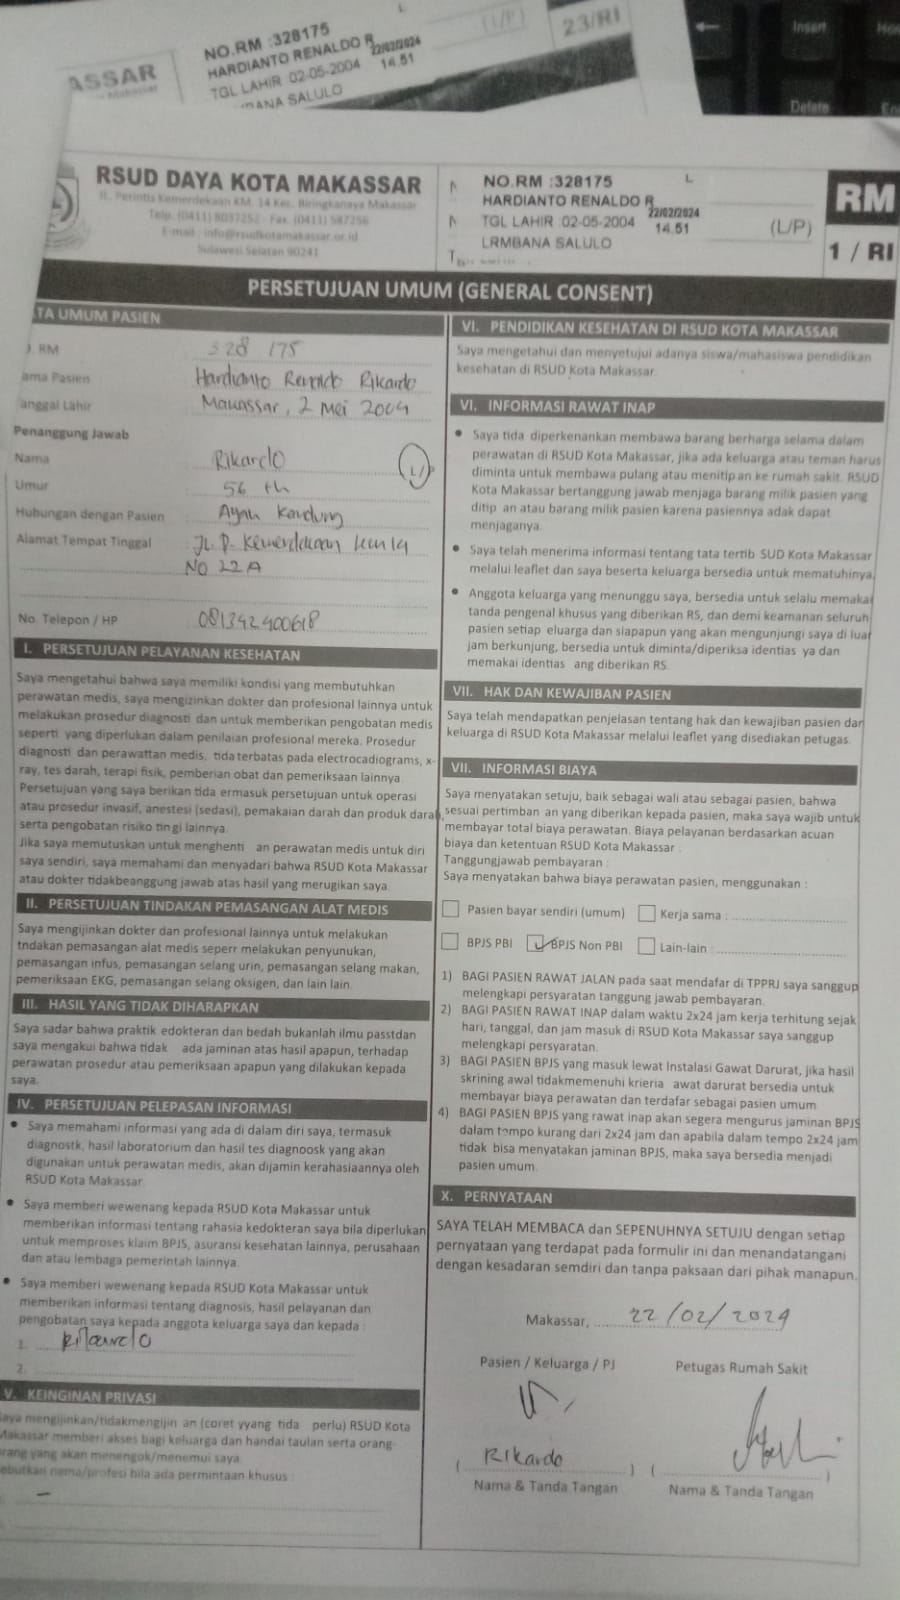 ASSAR
Makassar
NO.RM :328175
HARDIANTO RENALDO R
22/02/2024
TGL LAHIR 02-05-2004 14.51
BANA SALULO
(L/P)
23/RI
Insert
Delete
L
RSUD DAYA KOTA MAKASSAR
JL. Perintis Kemerdekaan KM. 14 Kec. Biringkanaya Makassar
Telp. (0411) 8037252 - Fax. (0411) 587256
E-mail : info@rsudkotamakassar.or.id
Sulawesi Selatan 90241
NO.RM :328175 L
HARDIANTO RENALDO R
22/02/2024
TGL LAHIR 02-05-2004 14.51
LRMBANA SALULO
(L/P)
RM
1 / RI
PERSETUJUAN UMUM (GENERAL CONSENT)
TA UMUM PASIEN
. RM 328 175
ama Pasien Hardianto Renaldo Rikardo
anggal Lahir Makassar, 2 Mei 2004
Penanggung Jawab
Nama Rikardo
Umur 56 th
Hubungan dengan Pasien Ayah Kandung
Alamat Tempat Tinggal JL. P. Kemerdekaan
NO 22A
No. Telepon / HP 081342400618
I. PERSETUJUAN PELAYANAN KESEHATAN
Saya mengetahui bahwa saya memiliki kondisi yang membutuhkan
perawatan medis, saya mengizinkan dokter dan profesional lainnya untuk
melakukan prosedur diagnosti dan untuk memberikan pengobatan medis
seperti yang diperlukan dalam penilaian profesional mereka. Prosedur
diagnosti dan perawattan medis, tidaterbatas pada electrocadiograms, x-
ray, tes darah, terapi fisik, pemberian obat dan pemeriksaan lainnya.
Persetujuan yang saya berikan tida ermasuk persetujuan untuk operasi
atau prosedur invasif, anestesi (sedasi), pemakaian darah dan produk darah,
serta pengobatan risiko tingi lainnya.
Jika saya memutuskan untuk menghenti an perawatan medis untuk diri
saya sendiri, saya memahami dan menyadari bahwa RSUD Kota Makassar
atau dokter tidakbeanggung jawab atas hasil yang merugikan saya.
II. PERSETUJUAN TINDAKAN PEMASANGAN ALAT MEDIS
Saya mengijinkan dokter dan profesional lainnya untuk melakukan
tndakan pemasangan alat medis seperr melakukan penyunukan,
pemasangan infus, pemasangan selang urin, pemasangan selang makan,
pemeriksaan EKG, pemasangan selang oksigen, dan lain lain.
III. HASIL YANG TIDAK DIHARAPKAN
Saya sadar bahwa praktik edokteran dan bedah bukanlah ilmu passtdan
saya mengakui bahwa tidak ada jaminan atas hasil apapun, terhadap
perawatan prosedur atau pemeriksaan apapun yang dilakukan kepada
saya.
IV. PERSETUJUAN PELEPASAN INFORMASI
• Saya memahami informasi yang ada di dalam diri saya, termasuk
diagnostk, hasil laboratorium dan hasil tes diagnoosk yang akan
digunakan untuk perawatan medis, akan dijamin kerahasiaannya oleh
RSUD Kota Makassar.
• Saya memberi wewenang kepada RSUD Kota Makassar untuk
memberikan informasi tentang rahasia kedokteran saya bila diperlukan
untuk memproses klaim BPJS, asuransi kesehatan lainnya, perusahaan
dan atau lembaga pemerintah lainnya.
• Saya memberi wewenang kepada RSUD Kota Makassar untuk
memberikan informasi tentang diagnosis, hasil pelayanan dan
pengobatan saya kepada anggota keluarga saya dan kepada :
1. Rikardo
2.
V. KEINGINAN PRIVASI
aya mengijinkan/tidakmengijin an (coret yyang tida perlu) RSUD Kota
Makassar memberi akses bagi keluarga dan handai taulan serta orang-
orang yang akan menengok/menemui saya.
ebutkan nama/profesi bila ada permintaan khusus :
–
VI. PENDIDIKAN KESEHATAN DI RSUD KOTA MAKASSAR
Saya mengetahui dan menyetujui adanya siswa/mahasiswa pendidikan
kesehatan di RSUD Kota Makassar.
VI. INFORMASI RAWAT INAP
• Saya tida diperkenankan membawa barang berharga selama dalam
perawatan di RSUD Kota Makassar, jika ada keluarga atau teman harus
diminta untuk membawa pulang atau menitip an ke rumah sakit. RSUD
Kota Makassar bertanggung jawab menjaga barang milik pasien yang
ditip an atau barang milik pasien karena pasiennya adak dapat
menjaganya.
• Saya telah menerima informasi tentang tata tertib SUD Kota Makassar
melalui leaflet dan saya beserta keluarga bersedia untuk mematuhinya.
• Anggota keluarga yang menunggu saya, bersedia untuk selalu memakai
tanda pengenal khusus yang diberikan RS, dan demi keamanan seluruh
pasien setiap eluarga dan siapapun yang akan mengunjungi saya di luar
jam berkunjung, bersedia untuk diminta/diperiksa identias ya dan
memakai identias ang diberikan RS.
VII. HAK DAN KEWAJIBAN PASIEN
Saya telah mendapatkan penjelasan tentang hak dan kewajiban pasien dan
keluarga di RSUD Kota Makassar melalui leaflet yang disediakan petugas.
VII. INFORMASI BIAYA
Saya menyatakan setuju, baik sebagai wali atau sebagai pasien, bahwa
sesuai pertimban an yang diberikan kepada pasien, maka saya wajib untuk
membayar total biaya perawatan. Biaya pelayanan berdasarkan acuan
biaya dan ketentuan RSUD Kota Makassar :
Tanggungjawab pembayaran :
Saya menyatakan bahwa biaya perawatan pasien, menggunakan :
Pasien bayar sendiri (umum) Kerja sama :
BPJS PBI BPJS Non PBI Lain-lain :
1) BAGI PASIEN RAWAT JALAN pada saat mendafar di TPPRJ saya sanggup
melengkapi persyaratan tanggung jawab pembayaran.
2) BAGI PASIEN RAWAT INAP dalam waktu 2x24 jam kerja terhitung sejak
hari, tanggal, dan jam masuk di RSUD Kota Makassar saya sanggup
melengkapi persyaratan.
3) BAGI PASIEN BPJS yang masuk lewat Instalasi Gawat Darurat, jika hasil
skrining awal tidakmemenuhi krieria awat darurat bersedia untuk
membayar biaya perawatan dan terdafar sebagai pasien umum
4) BAGI PASIEN BPJS yang rawat inap akan segera mengurus jaminan BPJS
dalam tempo kurang dari 2x24 jam dan apabila dalam tempo 2x24 jam
tidak bisa menyatakan jaminan BPJS, maka saya bersedia menjadi
pasien umum.
X. PERNYATAAN
SAYA TELAH MEMBACA dan SEPENUHNYA SETUJU dengan setiap
pernyataan yang terdapat pada formulir ini dan menandatangani
dengan kesadaran semdiri dan tanpa paksaan dari pihak manapun.
Makassar, 22/02/2024
Pasien / Keluarga / PJ Petugas Rumah Sakit
( Rikardo ) ( )
Nama & Tanda Tangan Nama & Tanda Tangan